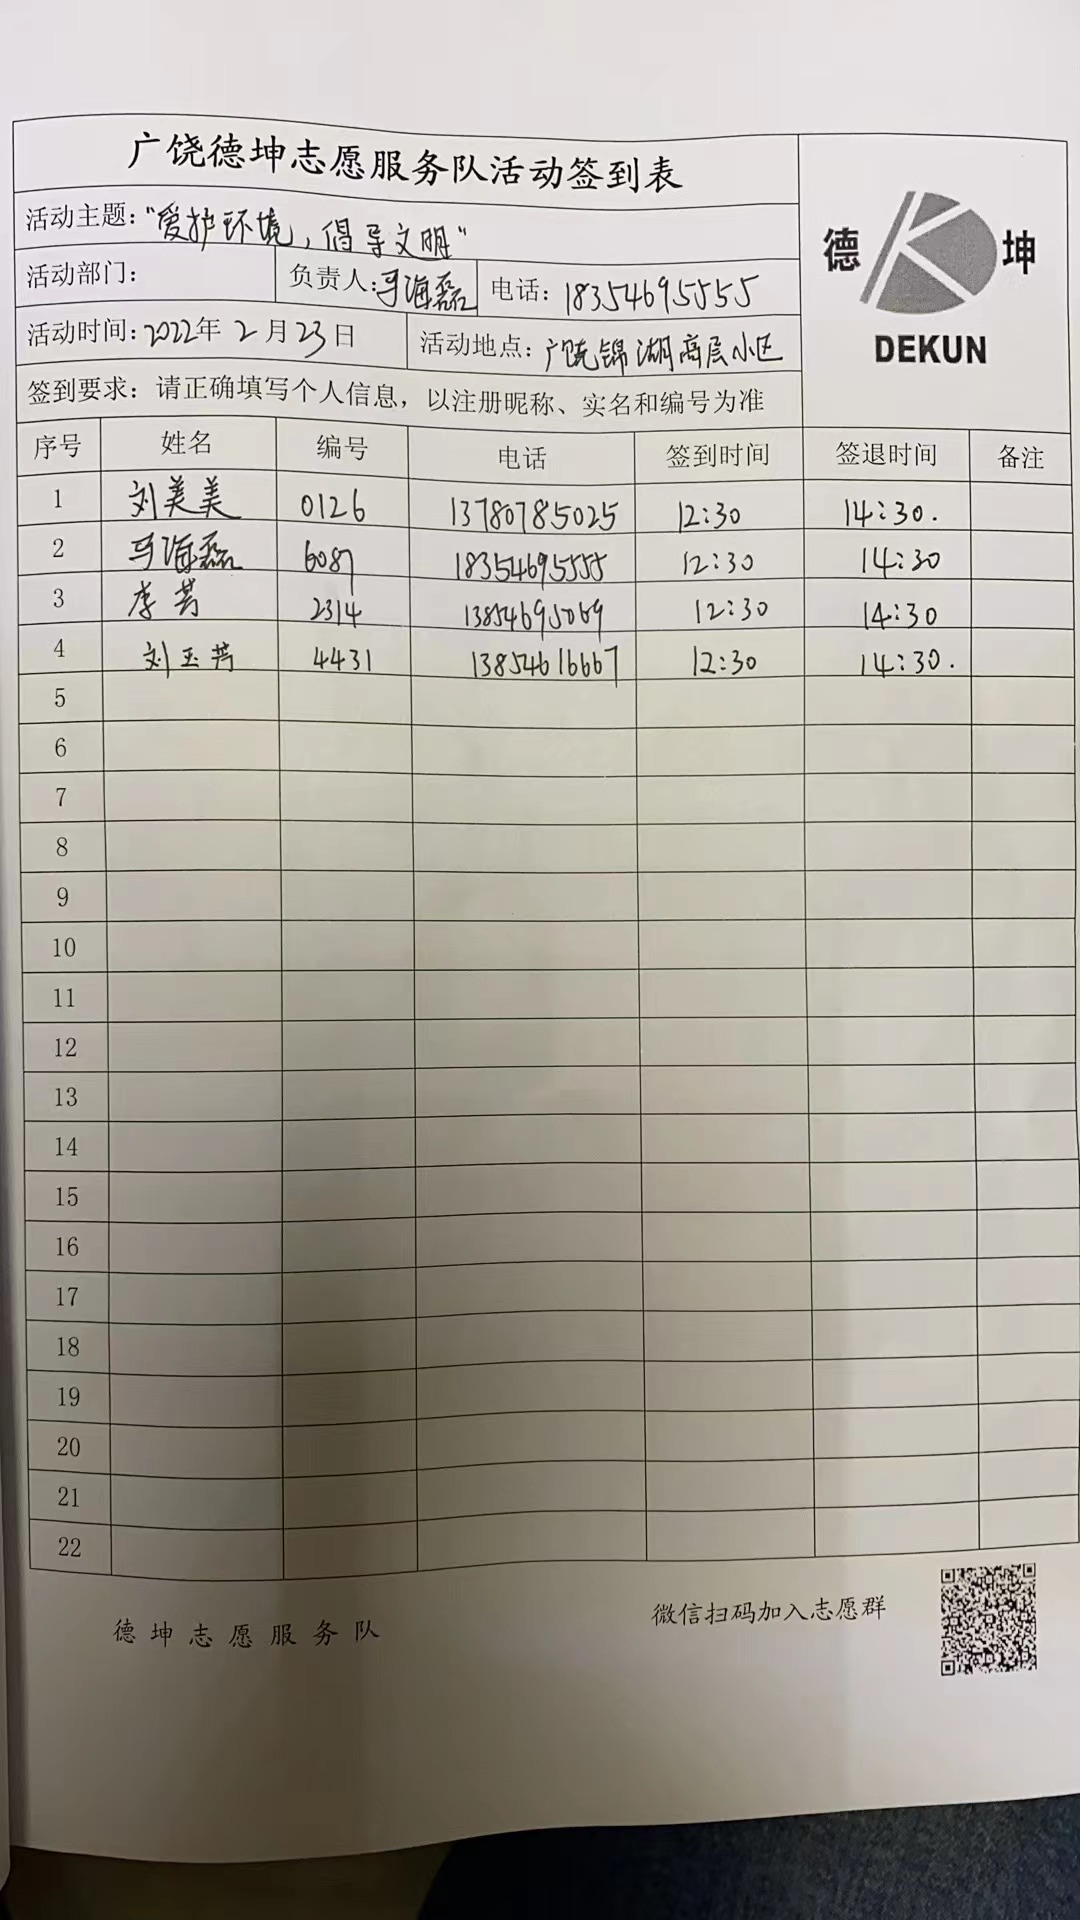 广饶德坤志愿服务队活动签到表
德 坤
DEKUN
活动主题：“爱护环境，倡导文明”
活动部门： 负责人：马海磊 电话：18354695555
活动时间：2022年2月23日 活动地点：广饶锦湖高层小区
签到要求：请正确填写个人信息，以注册昵称、实名和编号为准
序号 姓名 编号 电话 签到时间 签退时间 备注
1 刘美美 0126 13780785025 12:30 14:30.
2 马海磊 6087 18354695555 12:30 14:30
3 李芳 2314 13854695069 12:30 14:30
4 刘玉芳 4431 13854616667 12:30 14:30.
5
6
7
8
9
10
11
12
13
14
15
16
17
18
19
20
21
22
德坤志愿服务队 微信扫码加入志愿群